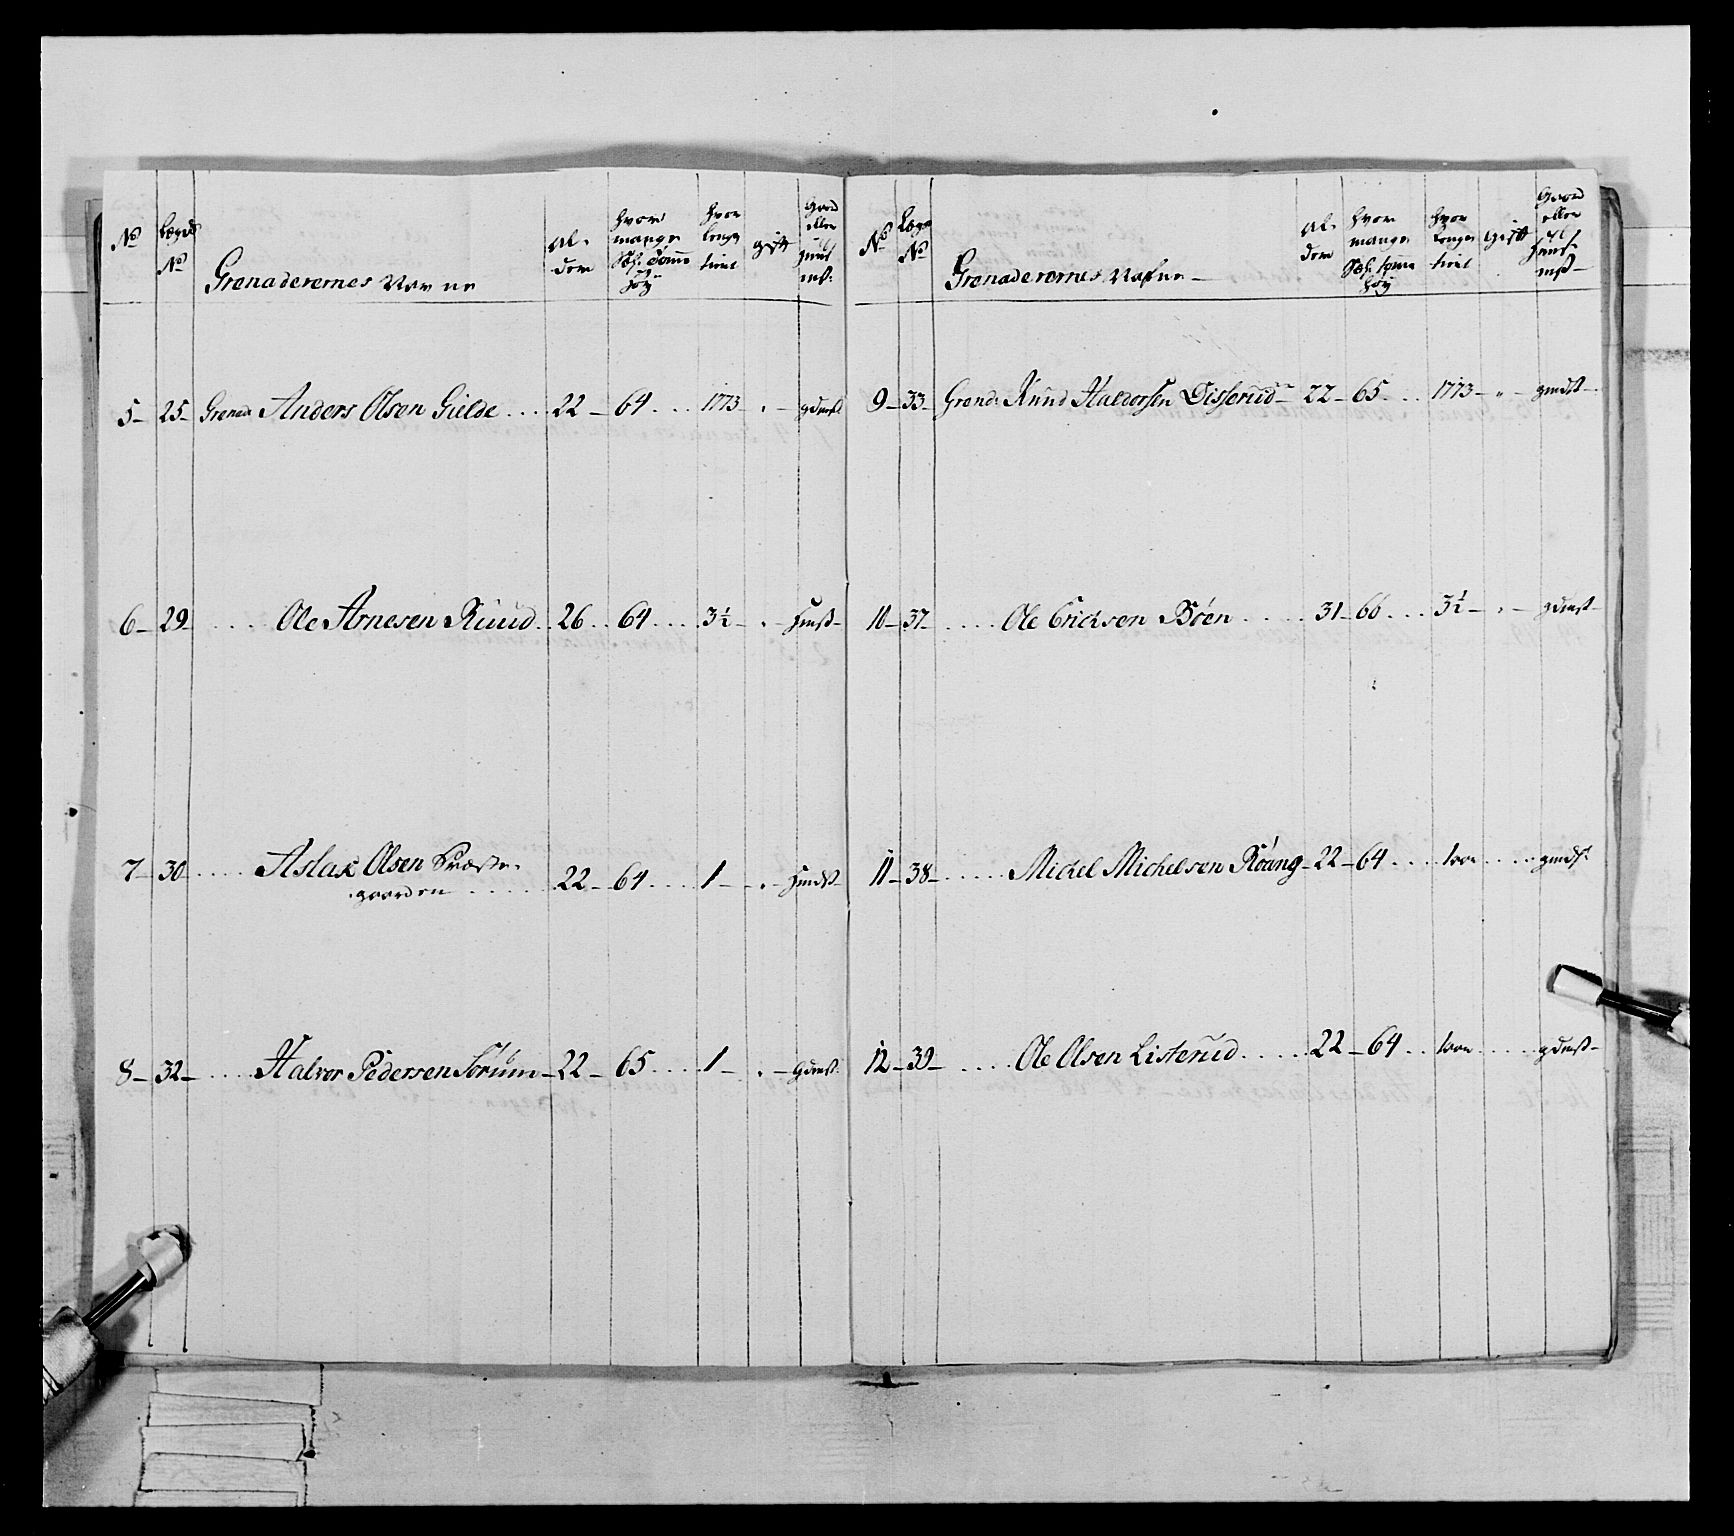 No
Lægds
No
Grenaderernes Navne
Al-
der
hvor
mange
Sæl. Tomme
høy
hvor
lenge
tient
gift
Gaard
eller
huus
mst:
5 25 Grenad: Anders Olsen Gielde .... 22 64 .... 1773
6 29 .... Ole Arnesen Ruud .. 26 .. 64 .... 3½ huusst
7 30 .... Aslak Olsen Præste-
gaarden ..... 22 64 .... 1
8 32 .... Halvor Pedersen Sørum 22 65 .... 1
No
Lægs
No
Grenaderernes Nafne
Al-
der
hvor
mange
Sæl. tomme
høy
hvor
lenge
tient
gift
Gaard
eller
huus-
mst
9 33 Grend: Knud Haldorsen Disserud 22 65 .... 1773 "
10 37 ..... Ole Ericksen Bøen ..... 31 66 ... 3½
11 38 ..... Mickel Michelsen Roang 22 64 ....
12 39 ..... Ole Olsen Listerud ..... 22 64 ..